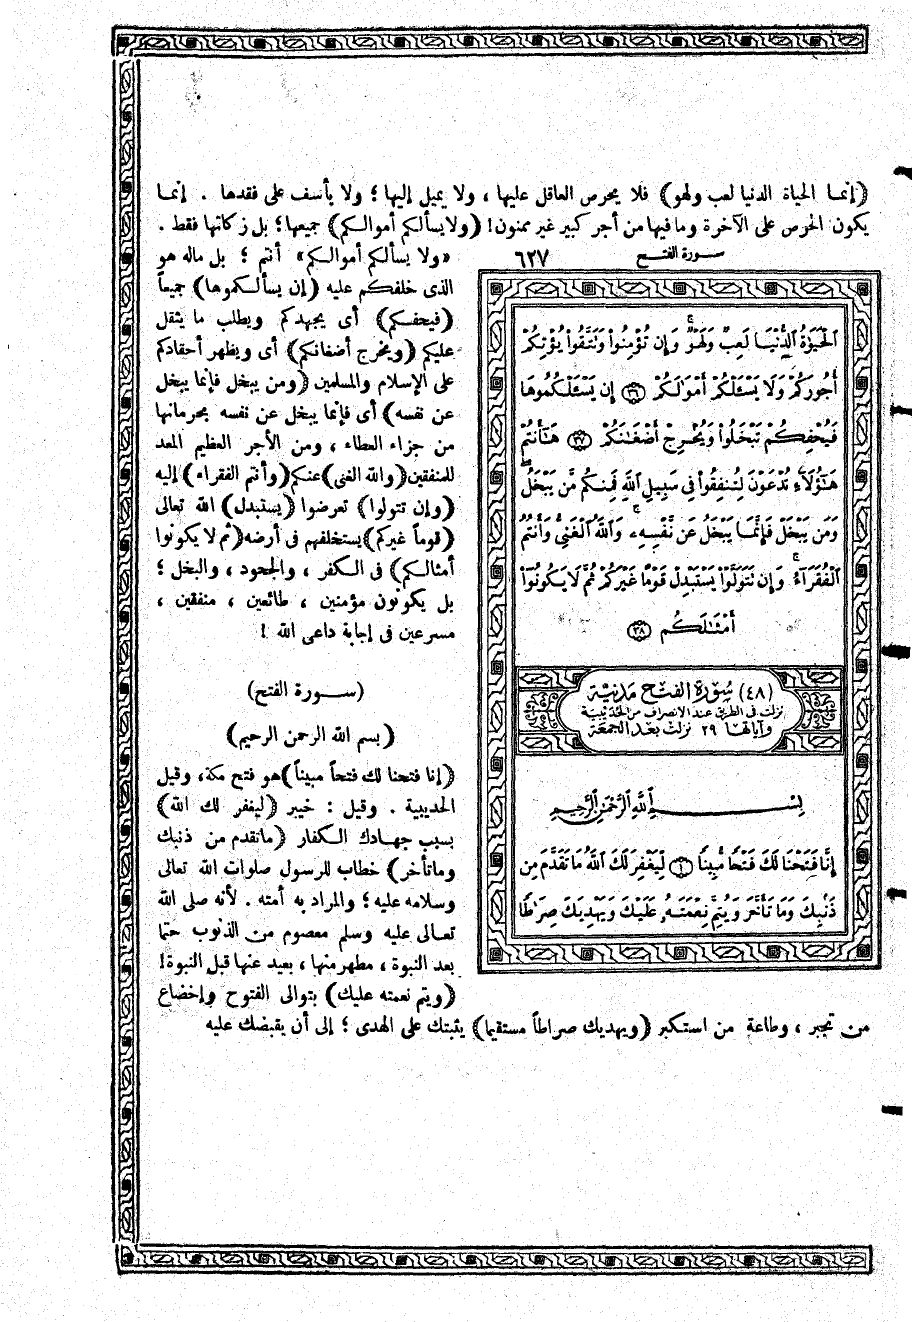 (إنما الحياة الدنيا لعب ولهو) فلا يحرص العاقل عليها ، ولا يميل إليها ؛ ولا يأسف على فقدها . إنما
يكون الحرص على الآخرة وما فيها من أجر كبير غير ممنون! (ولا يسألكم أموالكم) جميعها؛ بل زكاتها فقط .
سورة الفتح
٦٢٧
«ولا يسألكم أموالكم» أنتم ؛ بل ماله هو
الذى خلفكم عليه (إن يسألكموها) جميعاً
(فيحفكم) أى يجهدكم ويطلب ما يثقل
عليكم (ويخرج أضغانكم) أى ويظهر أحقادكم
على الإسلام والمسلمين (ومن يبخل فإنما يبخل
عن نفسه) أى فإنما يبخل عن نفسه بحرمانها
من جزاء العطاء ، ومن الأجر العظيم المعد
للمنفقين (والله الغنى) عنكم (وأنتم الفقراء) إليه
(وإن تتولوا) تعرضوا (يستبدل) الله تعالى
(قوماً غيركم) يستخلفهم فى أرضه (ثم لا يكونوا
أمثالكم) فى الكفر ، والجحود ، والبخل ؛
بل يكونون مؤمنين ، طائعين ، منفقين ،
مسرعين فى إجابة داعى الله !
(سورة الفتح)
(بسم الله الرحمن الرحيم)
(إنا فتحنا لك فتحاً مبيناً) هو فتح مكة، وقيل
الحديبية . وقيل : خيبر (ليغفر لك الله)
بسبب جهادك الكفار (ما تقدم من ذنبك
وما تأخر) خطاب للرسول صلوات الله تعالى
وسلامه عليه ؛ والمراد به أمته . لأنه صلى الله
تعالى عليه وسلم معصوم من الذنوب حتما
بعد النبوة ، مطهر منها ، بعيد عنها قبل النبوة!
(ويتم نعمته عليك) بتوالى الفتوح وإخضاع
من تجبر ، وطاعة من استكبر (ويهديك صراطاً مستقيما) يثبتك على الهدى ؛ إلى أن يقبضك عليه
ٱلْحَيَوٰةُ ٱلدُّنْيَا لَعِبٌ وَلَهْوٌ وَإِن تُؤْمِنُوا۟ وَتَتَّقُوا۟ يُؤْتِكُمْ
أُجُورَكُمْ وَلَا يَسْـَٔلْكُمْ أَمْوَٰلَكُمْ ٣٦ إِن يَسْـَٔلْكُمُوهَا
فَيُحْفِكُمْ تَبْخَلُوا۟ وَيُخْرِجْ أَضْغَـٰنَكُمْ ٣٧ هَـٰٓأَنتُمْ
هَـٰٓؤُلَآءِ تُدْعَوْنَ لِتُنفِقُوا۟ فِى سَبِيلِ ٱللَّهِ فَمِنكُم مَّن يَبْخَلُ
وَمَن يَبْخَلْ فَإِنَّمَا يَبْخَلُ عَن نَّفْسِهِۦ وَٱللَّهُ ٱلْغَنِىُّ وَأَنتُمُ
ٱلْفُقَرَآءُ وَإِن تَتَوَلَّوْا۟ يَسْتَبْدِلْ قَوْمًا غَيْرَكُمْ ثُمَّ لَا يَكُونُوٓا۟
أَمْثَـٰلَكُم ٣٨
(٤٨) سورة الفتح مدنية
نزلت فى الطريق عند الانصراف من الحديبية
وآياتها ٢٩ نزلت بعد الجمعة
بِسْمِ ٱللَّهِ ٱلرَّحْمَـٰنِ ٱلرَّحِيمِ
إِنَّا فَتَحْنَا لَكَ فَتْحًا مُّبِينًا ١ لِّيَغْفِرَ لَكَ ٱللَّهُ مَا تَقَدَّمَ مِن
ذَنۢبِكَ وَمَا تَأَخَّرَ وَيُتِمَّ نِعْمَتَهُۥ عَلَيْكَ وَيَهْدِيَكَ صِرَٰطًا